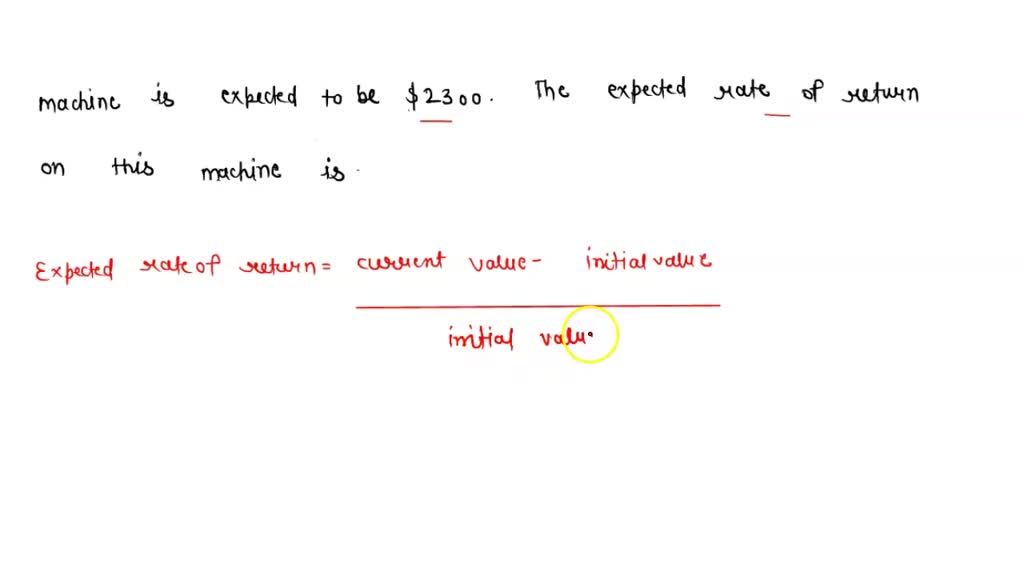 machine is expected to be $2300. The expected rate of return
on this machine is.
Expected rate of return = current value - initial value
initial valu